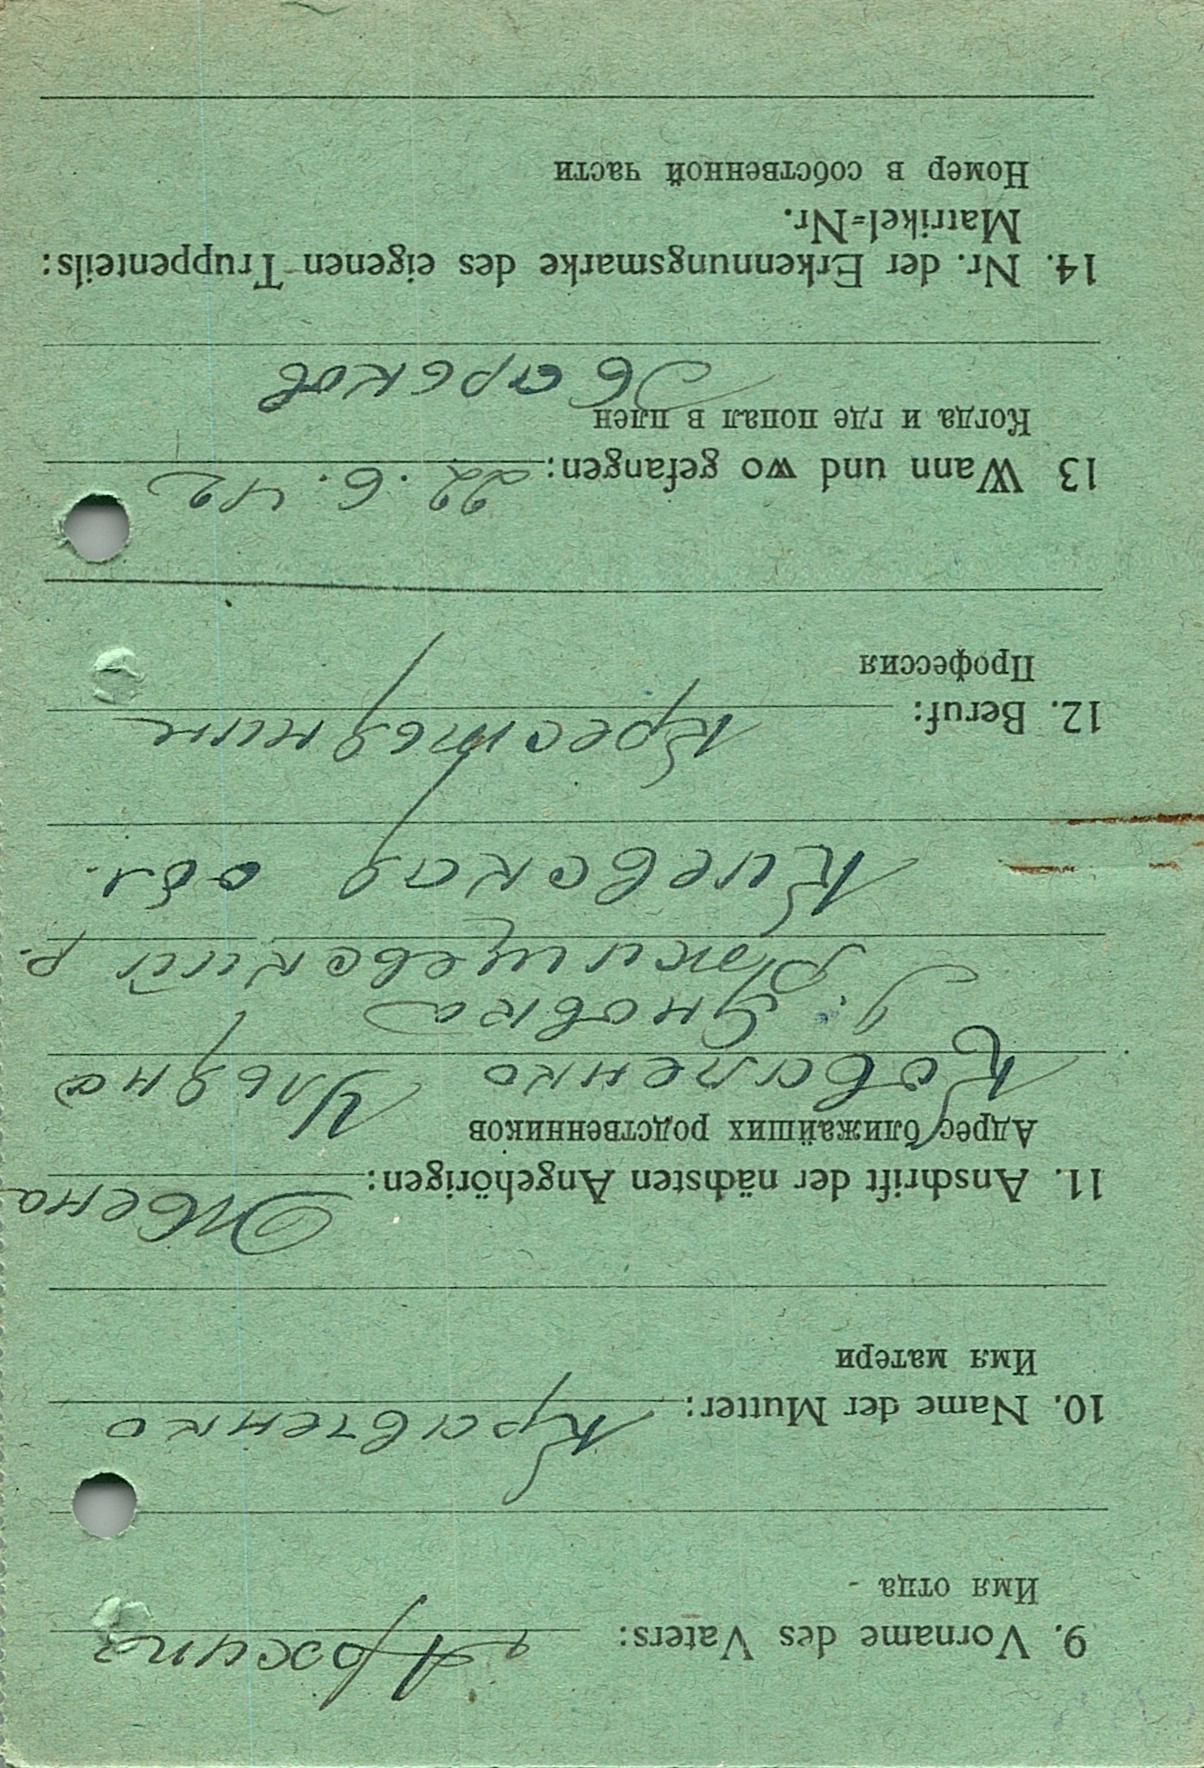 9. Vorname des Vaters: Архип
Имя отца
10. Name der Mutter: Кравченко
Имя матери
11. Anschrift der nächsten Angehörigen: Жена
Адрес ближайших родственников
Коваленко Ульяна
Яновка
Ржищевский р.
Киевская обл.
12. Beruf: Крестьянин
Профессия
13 Wann und wo gefangen: 22.6.42
Когда и где попал в плен
14. Nr. der Erkennungsmarke des eigenen Truppenteils:
Matrikel=Nr.
Номер в собственной части